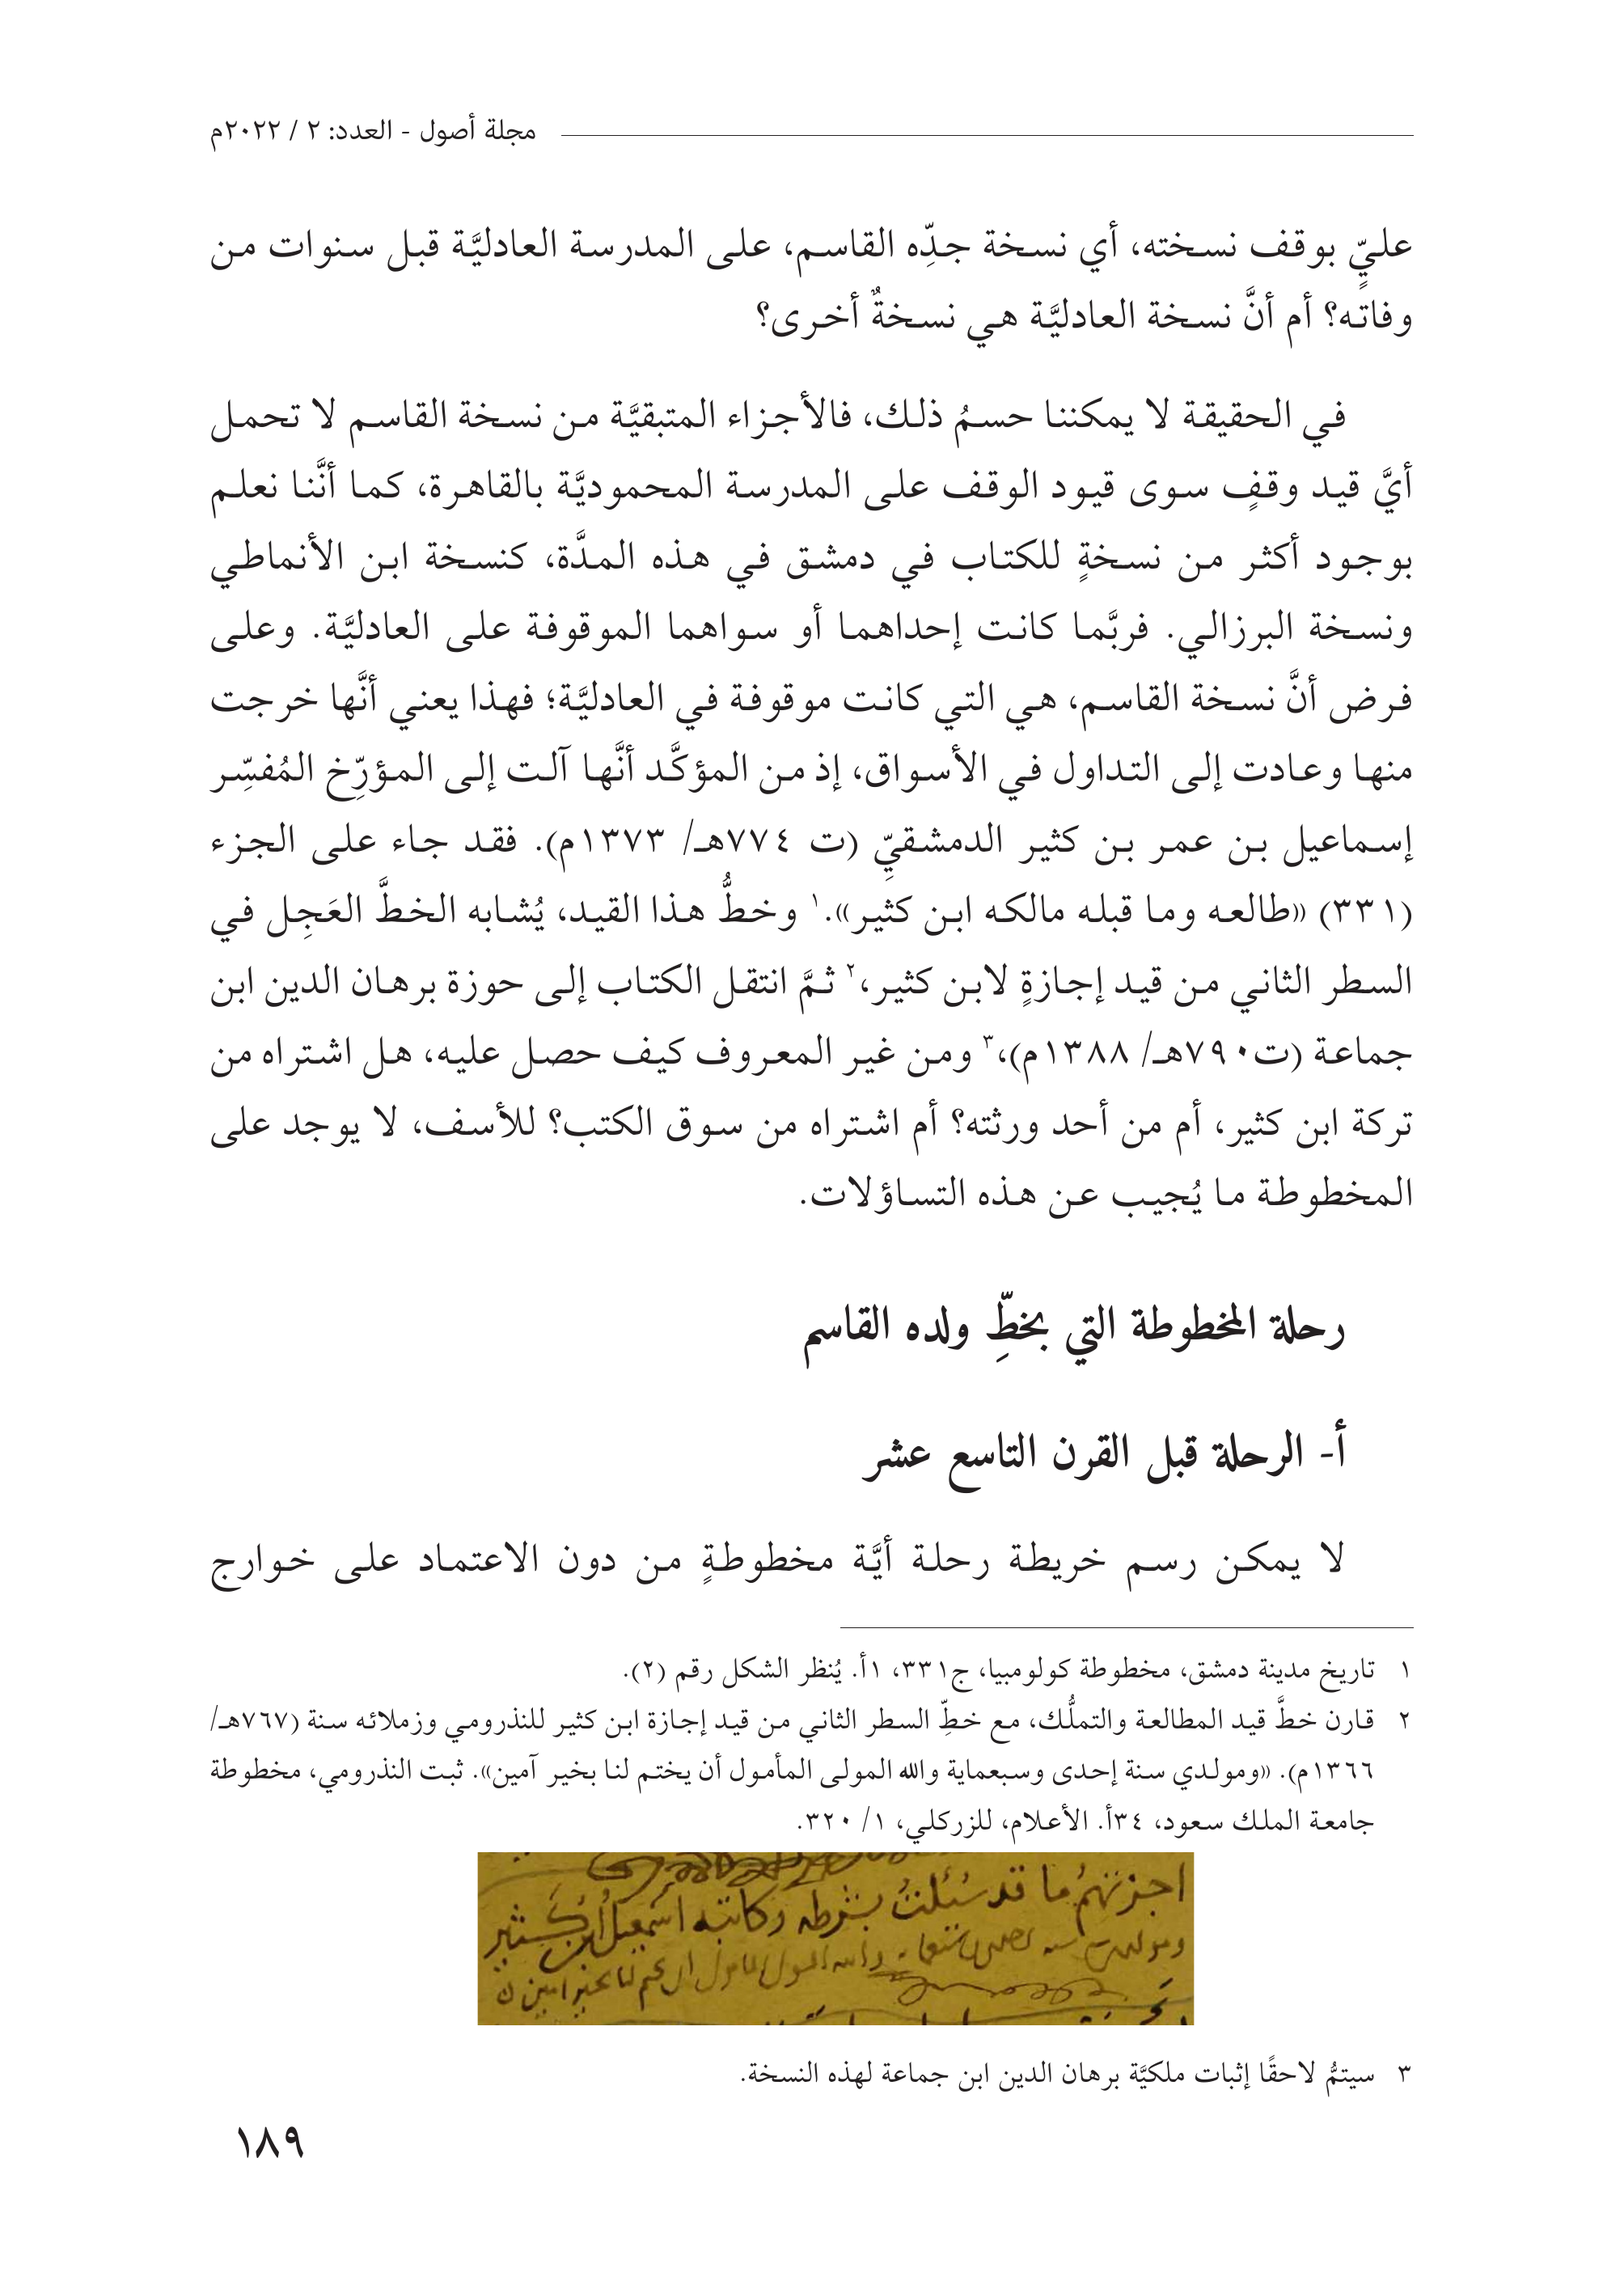 مجلة أصول - العدد: ٢ / ٢٠٢٢م
عليٍّ بوقف نسخته، أي نسخة جدِّه القاسم، على المدرسة العادليَّة قبل سنوات من
وفاته؟ أم أنَّ نسخة العادليَّة هي نسخةٌ أخرى؟
في الحقيقة لا يمكننا حسمُ ذلك، فالأجزاء المتبقيَّة من نسخة القاسم لا تحمل
أيَّ قيد وقفٍ سوى قيود الوقف على المدرسة المحموديَّة بالقاهرة، كما أنَّنا نعلم
بوجود أكثر من نسخةٍ للكتاب في دمشق في هذه المدَّة، كنسخة ابن الأنماطي
ونسخة البرزالي. فربَّما كانت إحداهما أو سواهما الموقوفة على العادليَّة. وعلى
فرض أنَّ نسخة القاسم، هي التي كانت موقوفة في العادليَّة؛ فهذا يعني أنَّها خرجت
منها وعادت إلى التداول في الأسواق، إذ من المؤكَّد أنَّها آلت إلى المؤرِّخ المُفسِّر
إسماعيل بن عمر بن كثير الدمشقيِّ (ت ٧٧٤هـ/ ١٣٧٣م). فقد جاء على الجزء
(٣٣١) «طالعه وما قبله مالكه ابن كثير».١ وخطُّ هذا القيد، يُشابه الخطَّ العَجِل في
السطر الثاني من قيد إجازةٍ لابن كثير،٢ ثمَّ انتقل الكتاب إلى حوزة برهان الدين ابن
جماعة (ت٧٩٠هـ/ ١٣٨٨م)،٣ ومن غير المعروف كيف حصل عليه، هل اشتراه من
تركة ابن كثير، أم من أحد ورثته؟ أم اشتراه من سوق الكتب؟ للأسف، لا يوجد على
المخطوطة ما يُجيب عن هذه التساؤلات.
رحلة المخطوطة التي بخطِّ ولده القاسم
أ- الرحلة قبل القرن التاسع عشر
لا يمكن رسم خريطة رحلة أيَّة مخطوطةٍ من دون الاعتماد على خوارج
١ تاريخ مدينة دمشق، مخطوطة كولومبيا، ج٣٣١، ١أ. يُنظر الشكل رقم (٢).
٢ قارن خطَّ قيد المطالعة والتملُّك، مع خطِّ السطر الثاني من قيد إجازة ابن كثير للنذرومي وزملائه سنة (٧٦٧هـ/
١٣٦٦م). «ومولدي سنة إحدى وسبعماية والله المولى المأمول أن يختم لنا بخير آمين». ثبت النذرومي، مخطوطة
جامعة الملك سعود، ٣٤أ. الأعلام، للزركلي، ١/ ٣٢٠.
اجزتهم ما قد سُئلتُ بشرطه وكاتبه اسمعيل ابن كثير
ومولدي سنة احدى وسبعماية والله المولى المامول ان يختم لنا بخير امين
٣ سيتمُّ لاحقًا إثبات ملكيَّة برهان الدين ابن جماعة لهذه النسخة.
١٨٩